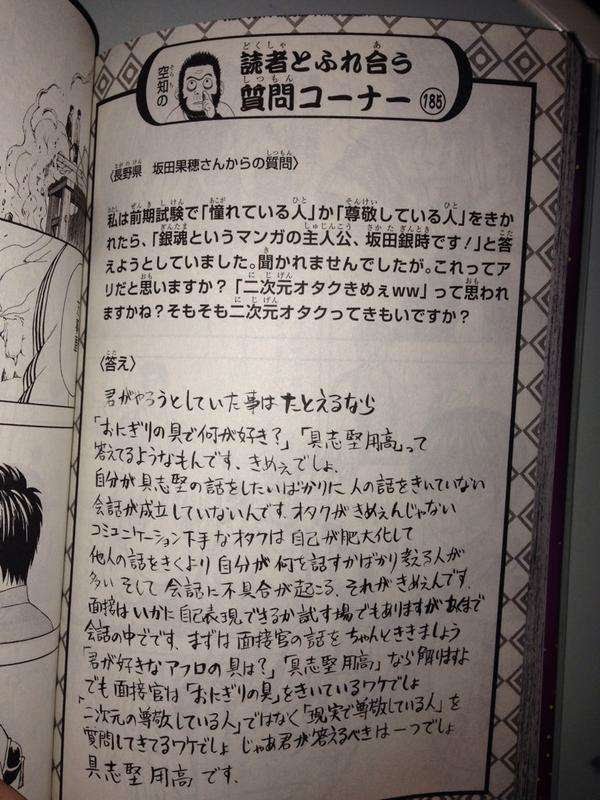 空知の
読者とふれ合う
質問コーナー 185
〈長野県 坂田果穂さんからの質問〉
私は前期試験で「憧れている人」か「尊敬している人」をきか
れたら、「銀魂というマンガの主人公、坂田銀時です!」と答
えようとしていました。聞かれませんでしたが。これってア
リだと思いますか?「二次元オタクきめぇww」って思われ
ますかね?そもそも二次元オタクってきもいですか?
〈答え〉
君がやろうとしていた事はたとえるなら
「おにぎりの具で何が好き?」「具志堅用高」って
答えてるようなもんです、きめぇでしょ、
自分が具志堅の話をしたいばかりに人の話をきいていない
会話が成立していないんです、オタクがきめぇんじゃない
コミュニケーション下手なオタクは自己が肥大化して
他人の話をきくより自分が何を話すかばかり考える人が
多い そして 会話に不具合が起こる、それがきめぇんです、
面接はいかに自己表現できるか試す場でもありますがあくまで
会話の中でです、まずは面接官の話をちゃんとききましょう
「君が好きなアフロの具は?」「具志堅用高」なら解りますよ
でも面接官は「おにぎりの具」をきいているワケでしょ
「二次元の尊敬している人」ではなく「現実で尊敬している人」を
質問してきてるワケでしょ じゃあ君が答えるべきは一つでしょ
具志堅用高です、